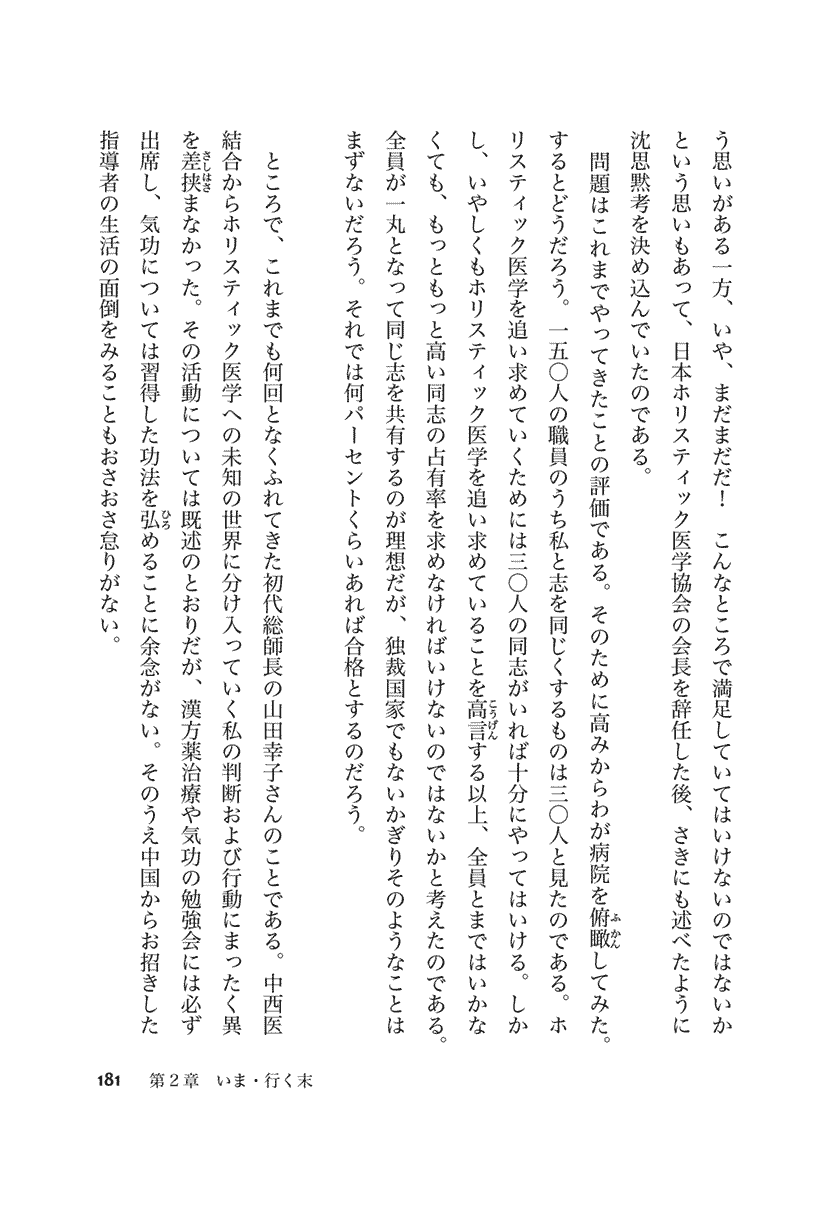 う思いがある一方、いや、まだまだだ！　こんなところで満足していてはいけないのではないか
という思いもあって、日本ホリスティック医学協会の会長を辞任した後、さきにも述べたように
沈思黙考を決め込んでいたのである。
　問題はこれまでやってきたことの評価である。そのために高みからわが病院を俯瞰してみた。
するとどうだろう。一五〇人の職員のうち私と志を同じくするものは三〇人と見たのである。ホ
リスティック医学を追い求めていくためには三〇人の同志がいれば十分にやってはいける。しか
し、いやしくもホリスティック医学を追い求めていることを高言する以上、全員とまではいかな
くても、もっともっと高い同志の占有率を求めなければいけないのではないかと考えたのである。
全員が一丸となって同じ志を共有するのが理想だが、独裁国家でもないかぎりそのようなことは
まずないだろう。それでは何パーセントくらいあれば合格とするのだろう。
　ところで、これまでも何回となくふれてきた初代総師長の山田幸子さんのことである。中西医
結合からホリスティック医学への未知の世界に分け入っていく私の判断および行動にまったく異
を差挟まなかった。その活動については既述のとおりだが、漢方薬治療や気功の勉強会には必ず
出席し、気功については習得した功法を弘めることに余念がない。そのうえ中国からお招きした
指導者の生活の面倒をみることもおさおさ怠りがない。
181　第２章　いま・行く末